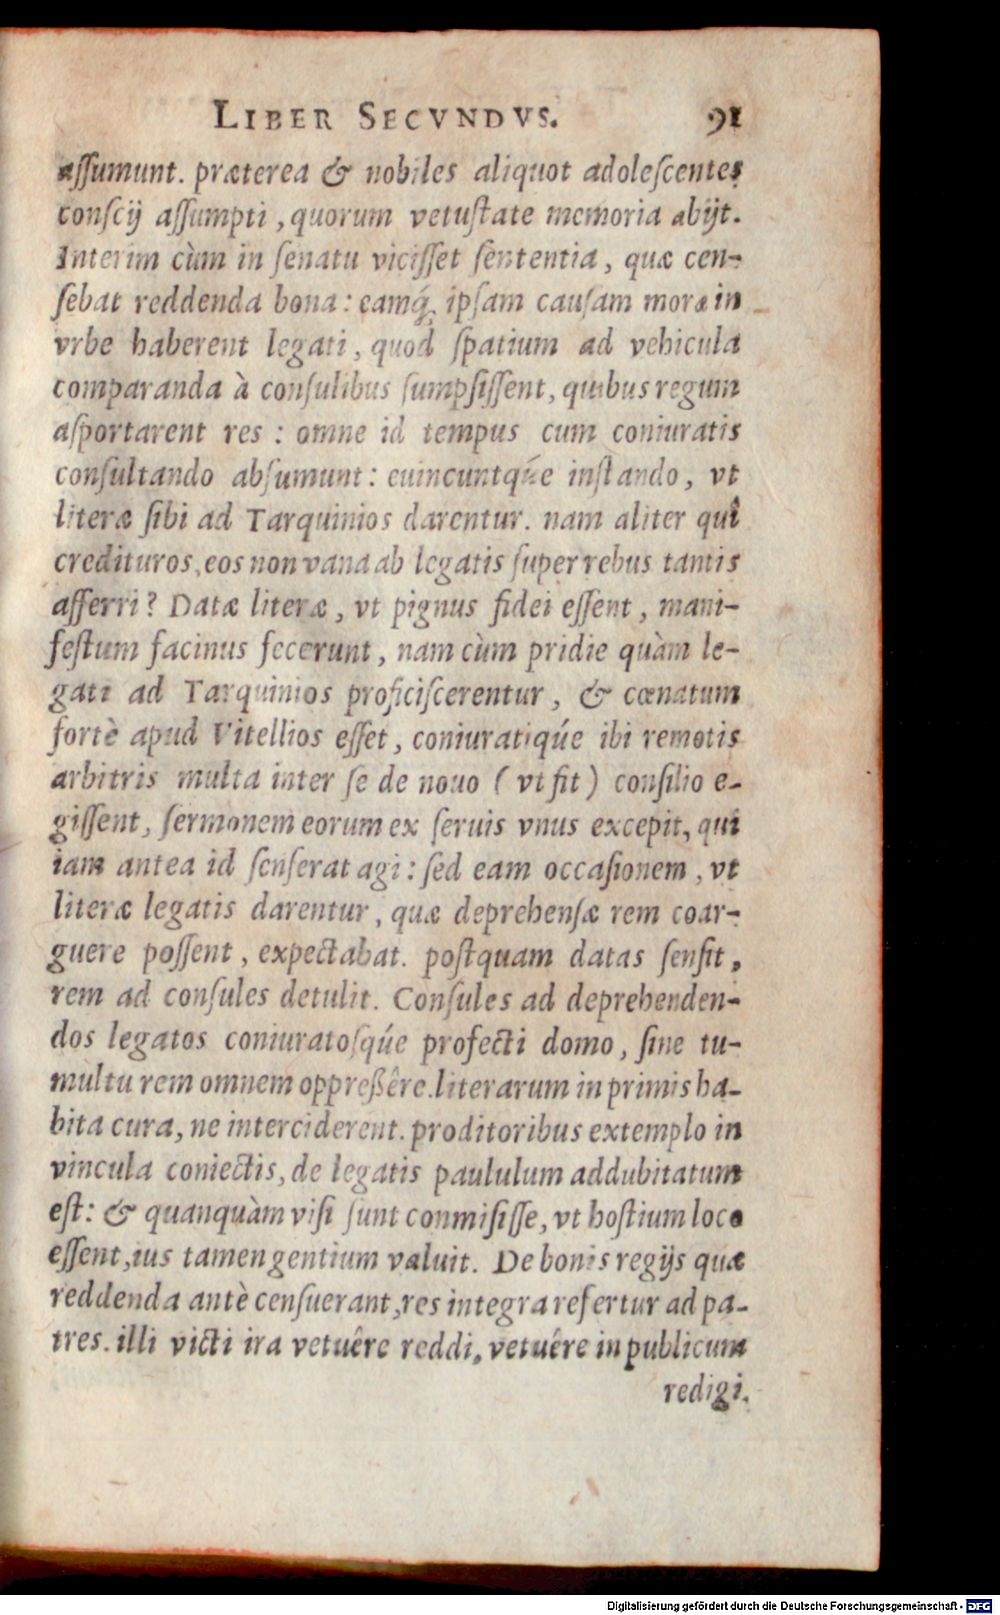 LIBER SECVNDVS. 91
aſſumunt. præterea & nobiles aliquot adoleſcentes
conſcij aſſumpti, quorum vetuſtate memoria abijt.
Interim cùm in ſenatu viciſſet ſententia, quæ cen-
ſebat reddenda bona: eamq́; ipſam cauſam moræ in
vrbe haberent legati, quod ſpatium ad vehicula
comparanda à conſulibus ſumpſiſſent, quibus regum
aſportarent res: omne id tempus cum coniuratis
conſultando abſumunt: euincuntqúe inſtando, vt
literæ ſibi ad Tarquinios darentur. nam aliter qui
credituros, eos non vana ab legatis ſuper rebus tantis
afferri? Datæ literæ, vt pignus fidei eſſent, mani-
feſtum facinus fecerunt, nam cùm pridie quàm le-
gati ad Tarquinios proficiſcerentur, & cœnatum
fortè apud Vitellios eſſet, coniuratiqúe ibi remotis
arbitris multa inter ſe de nouo (vt fit) conſilio e-
giſſent, ſermonem eorum ex ſeruis vnus excepit, qui
iam antea id ſenſerat agi: ſed eam occaſionem, vt
literæ legatis darentur, quæ deprehenſæ rem coar-
guere poſſent, expectabat. poſtquam datas ſenſit,
rem ad conſules detulit. Conſules ad deprehenden-
dos legatos coniuratoſqúe profecti domo, ſine tu-
multu rem omnem oppreßêre. literarum in primis ha-
bita cura, ne interciderent. proditoribus extemplo in
vincula coniectis, de legatis paululum addubitatum
eſt: & quanquàm viſi ſunt conmiſiſſe, vt hoſtium loco
eſſent, ius tamen gentium valuit. De bonis regijs quæ
reddenda antè cenſuerant, res integra refertur ad pa-
tres. illi victi ira vetuêre reddi, vetuêre in publicum
redigi.
Digitalisierung gefördert durch die Deutsche Forschungsgemeinschaft - DFG